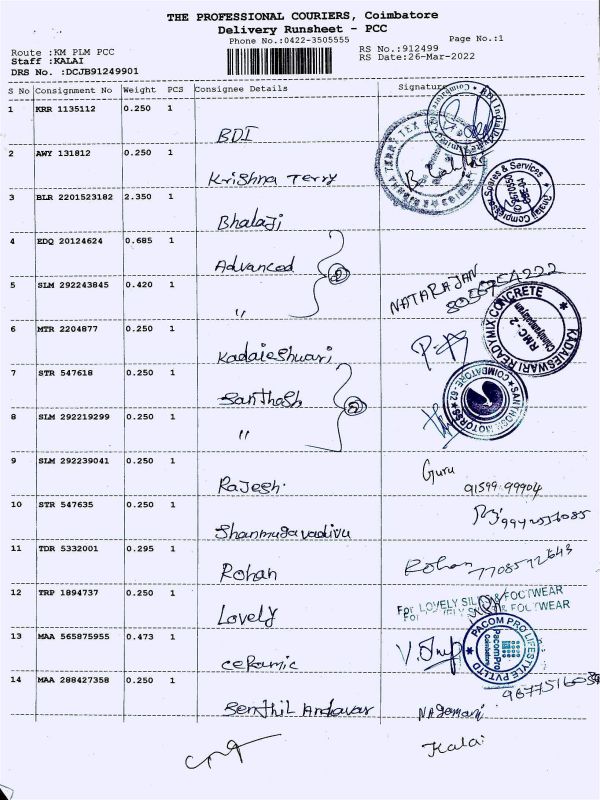 THE PROFESSIONAL COURIERS, Coimbatore
Delivery Runsheet - PCC
Phone No.:0422-3505555
Page No.:1
Route :KM PLM PCC
Staff :KALAI
DRS No. :DCJB91249901
RS No.:912499
RS Date:26-Mar-2022
S No Consignment No Weight PCS Consignee Details Signature
1 KRR 1135112 0.250 1
BDI
2 AWY 131812 0.250 1
Krishna Terry
3 BLR 2201523182 2.350 1
Bhalaji
4 EDQ 20124624 0.685 1
Advanced
5 SLM 292243845 0.420 1
"
NATARAJAN
6 MTR 2204877 0.250 1
Kadaieshwari
KADAIESWARI READYMIX CONCRETE
RMC-2
7 STR 547618 0.250 1
Santhosh
SANTHOSH MOTORSS
COIMBATORE - 62
8 SLM 292219299 0.250 1
"
9 SLM 292239041 0.250 1
Rajesh.
Guru
91599 99904
10 STR 547635 0.250 1
Shanmugavadivu
11 TDR 5332001 0.295 1
Rohan
Rohan
7708572643
12 TRP 1894737 0.250 1
Lovely
For LOVELY SILKS & FOOTWEAR
13 MAA 565875955 0.473 1
Ceramic
PACOM PRO LIFESTYLE PVT LTD
PacomPro
Coimbatore
14 MAA 288427358 0.250 1
Senthil Andavar
Nagamani
Kalai